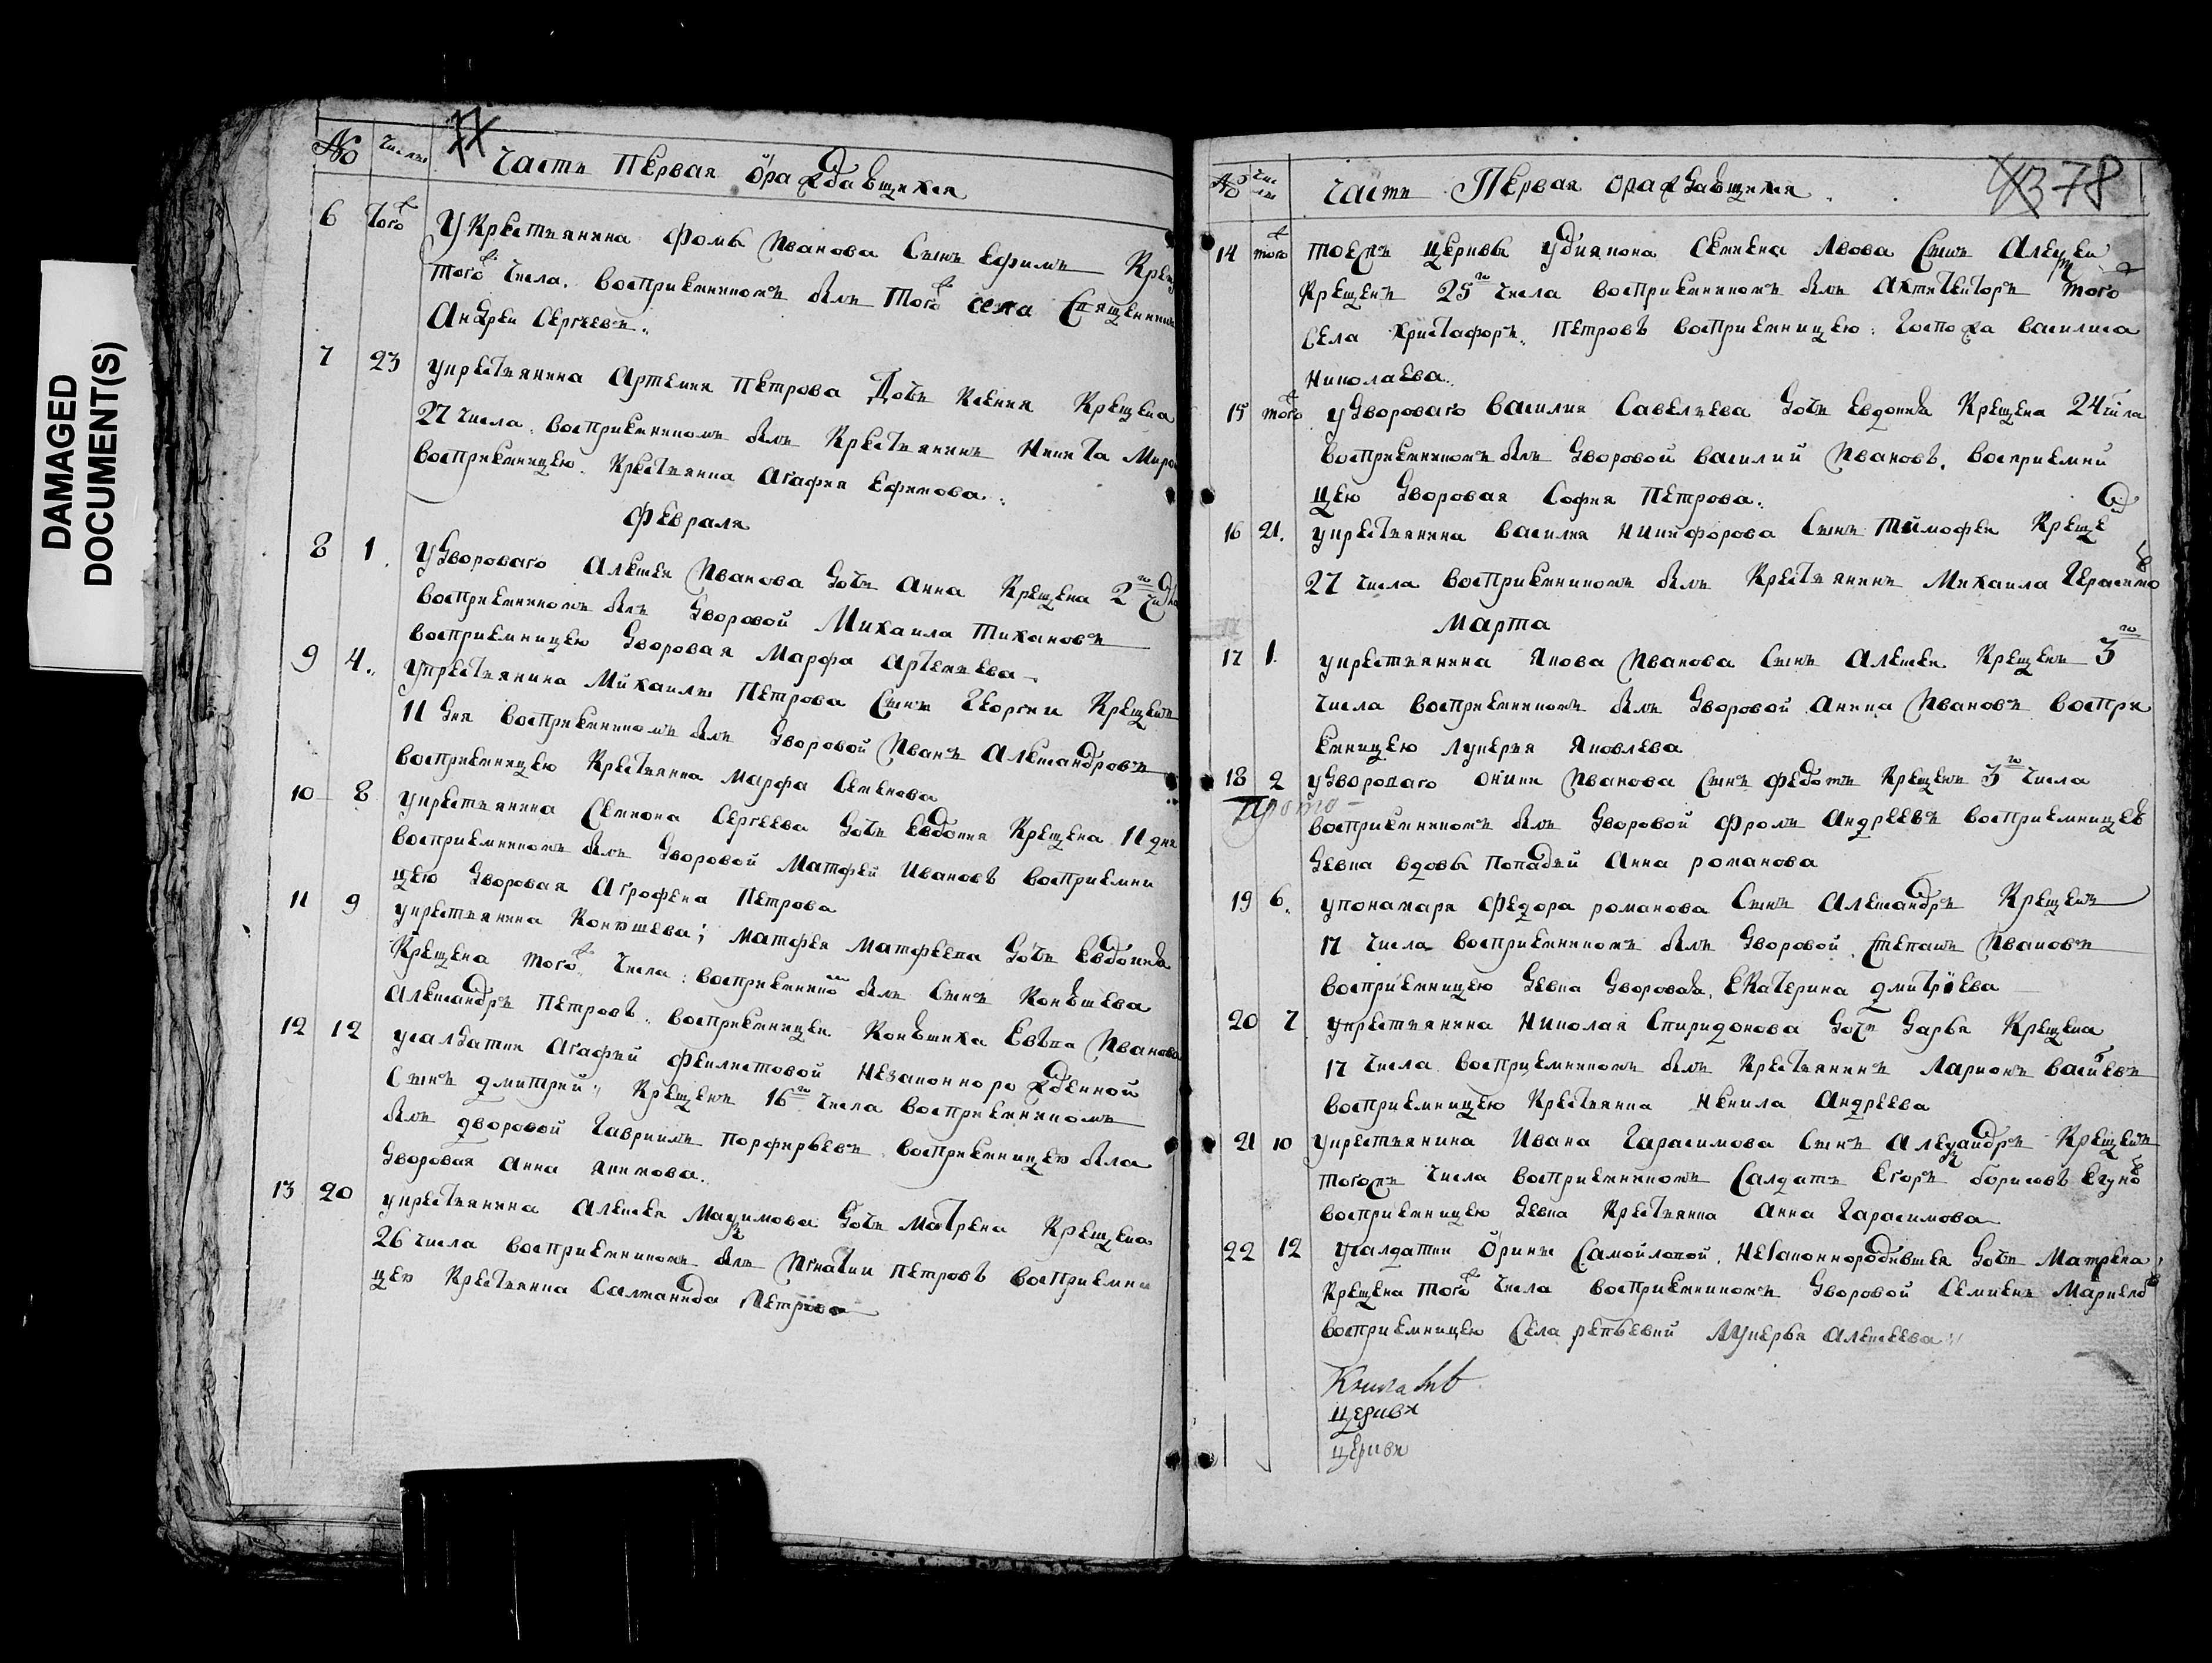 DAMAGED
DOCUMENT(S)
№ Число
Часть Первая ѡраждавщихся
6 Того ж У Крестьянина Фомы Иванова Сынъ Ефимъ
того ж числа. восприемникомъ былъ того ж села Сващенникъ
Андреи Сергеевъ.
7 23 укрестьянина Артемия Петрова Дочь Ксения Крещена
27 числа. восприемникомъ былъ Крестьянинъ Никита
восприемницею. Крестьянка Агафия Ефимова.
Февраля
8 1. Удвороваго Алексея Иванова дочь Анна Крещена 2 го
восприемникомъ былъ дворовой Михаила Тихановъ
восприемницею дворовая Марфа Артемьева
9 4. укрестьянина Михаилы Петрова Сынъ Георгии Крещенъ
11 дня восприемникомъ былъ дворовой Иванъ Александровъ
восприемницею Крестьянка Марфа Семенова
10 8 укрестьянина Семиона Сергеева дочь Евдокия Крещена 11 дня
восприемникомъ былъ дворовой Матфей Ивановъ восприемни
цею дворовая Агрофена Петрова
11 9 укрестьянина Конюшева; Матфея Матфеева дочь Евдокия
Крещена того ж числа: восприемнико м былъ Сынъ Конюшева
Александръ Петровъ. восприемницеи Конюшиха Евва Иванова
12 12 усалдатки Агафьи Феклистовой Незаконнорожденной
Сынъ дмитрий, Крещенъ 16 го числа восприемникомъ
былъ дворовой Гавриилъ Порфирьевъ. восприемницею была
дворовая Анна Якимова.
13 20 укрестьянина Алексея Маѯимова дочь Матрена Крещена
26 числа восприемникомъ былъ Игнатии Петровъ восприемни
цею Крестьянка Саламанида Петрова
№ Число
Часть Первая ѡраждавщихся 78
14 того ж тоежъ церквы удиякона Семиена Лвова Сынъ Алеѯеи
Крещенъ 25 го числа восприемникомъ былъ того
села Христафоръ. Петровъ восприемницею: госпожа Василиса
Николаева.
15 того ж удвороваго Василия Савельева дочь Евдокия Крещена 24 числа
восприемникомъ былъ дворовой Василий Ивановъ. восприемни
цею дворовая София Петрова.
16 21. укрестьянина Василия Никифорова Сынъ Тимофеи Креще
27 числа восприемникомъ былъ Крестьянинъ Михаила Герасимо в
Марта
17 1. укрестьянина Якова Иванова Сынъ Алексеи Крещенъ 3 го
числа восприемникомъ былъ дворовой Аника Ивановъ воспри
емницею Лукерья Яковлева
18 2 удвороваго Иванова Сынъ Федотъ Крещенъ 3 го числа
восприемникомъ былъ дворовой Фролъ Андреевъ восприемницею
девка вдовы попадьи Анна Романова
19 6. упонамаря Федора Романова Сынъ Александръ Крещенъ
17 числа восприемникомъ былъ дворовой Степанъ Ивановъ
восприемницею девка дворовая. Екатерина дмитриева
20 7 укрестьянина Николая Спиридонова дочь Дарья Крещена
17 числа восприемникомъ былъ Крестьянинъ Ларионъ
восприемницею Крестьянка Ненила Андреева
21 10 укрестьянина Ивана Гарасимова Сынъ Алеѯандръ Крещенъ
тогожъ числа восприемникомъ Салдатъ Егоръ борисовъ
восприемницею девка Крестьянка Анна Гарасимова
22 12 усалдатки Орины Самойловой. Незаконнородившея дочь Матрена
Крещена того ж числа восприемникомъ дворовой Семиенъ
восприемницею Села репьевки Лукерья Алексеева
церквя
церквя